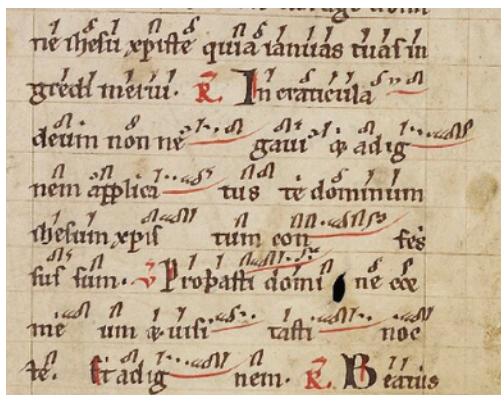 ne ihesu xpiste quia ianuas tuas in
gredi merui. R. In craticula
deum non ne gaui & ad ig
nem applica tus te dominum
ihesum xpis tum con fes
sus sum. V Probasti domi ne cor
me um & uisi tasti noc
te. Et ad ig nem. R. Beatus